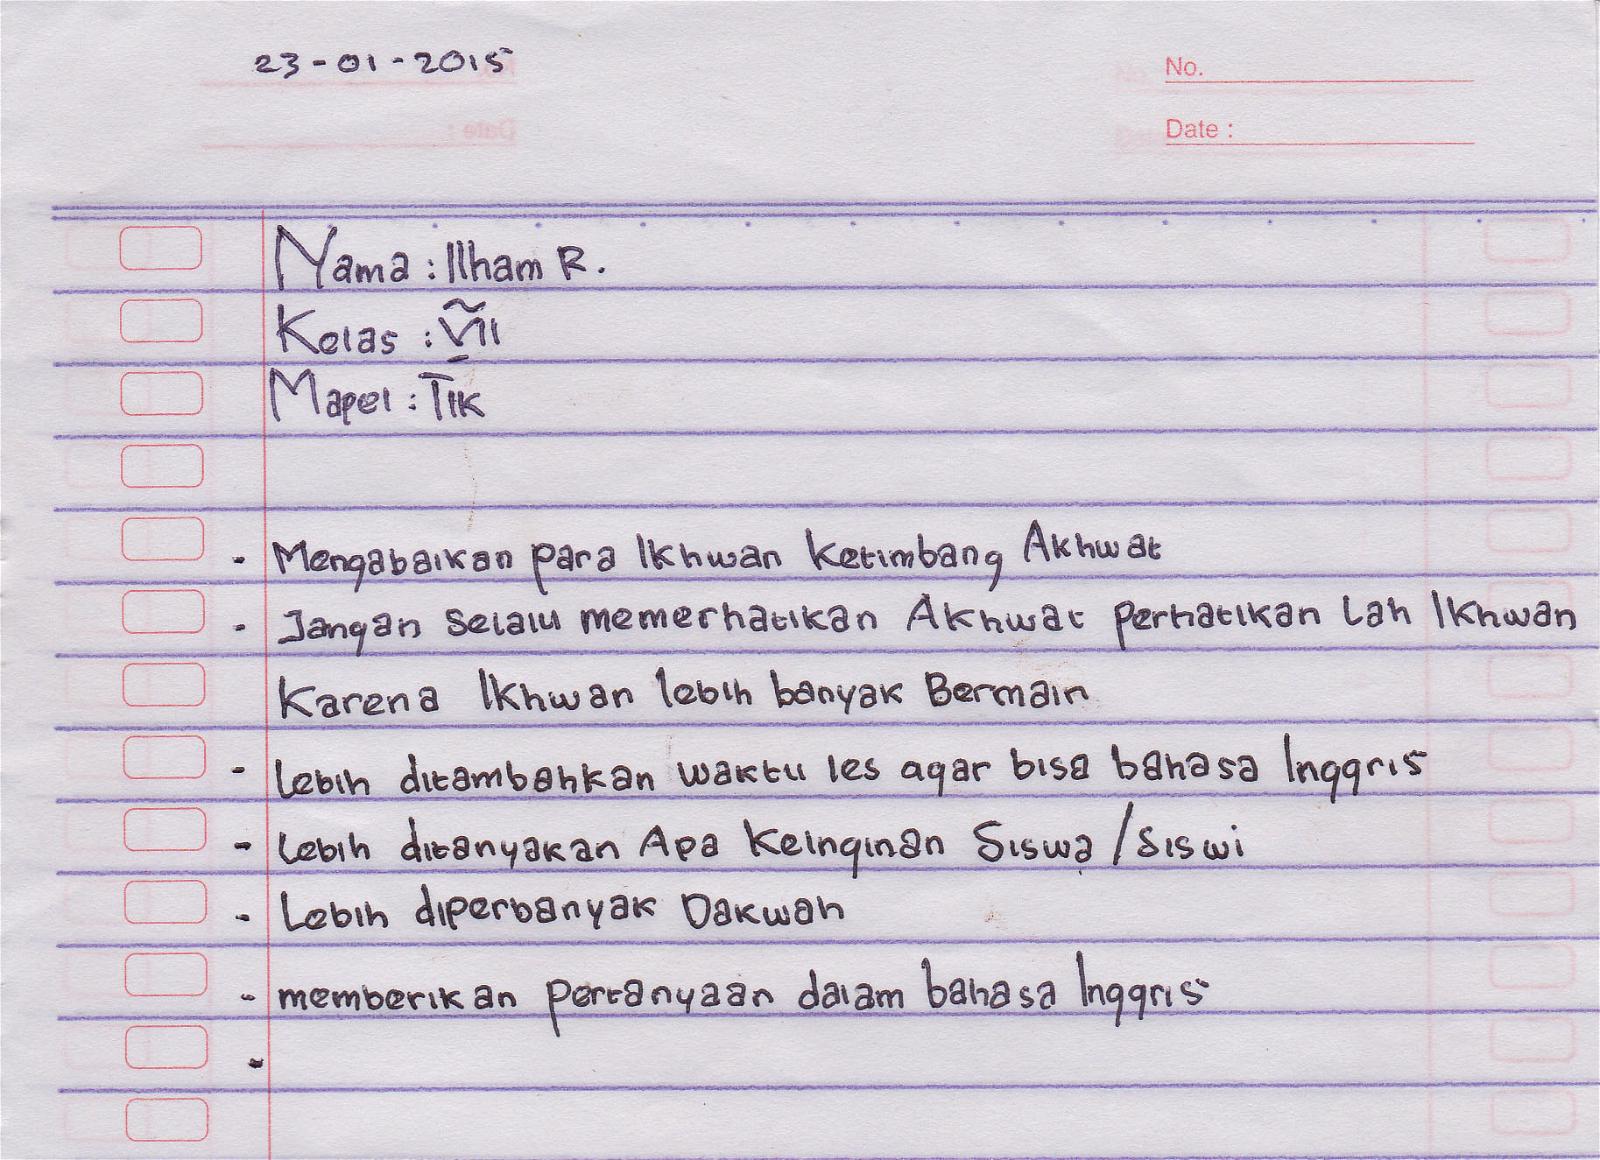 23-01-2015
No.
Date :
Nama : Ilham R.
Kelas : VII
Mapel : TIK
- Mengabaikan para Ikhwan Ketimbang Akhwat
- Jangan Selalu memerhatikan Akhwat perhatikan Lah Ikhwan
Karena Ikhwan lebih banyak Bermain
- Lebih ditambahkan waktu les agar bisa bahasa Inggris
- Lebih ditanyakan Apa Keinginan Siswa/siswi
- Lebih diperbanyak Dakwah
- memberikan pertanyaan dalam bahasa Inggris
-